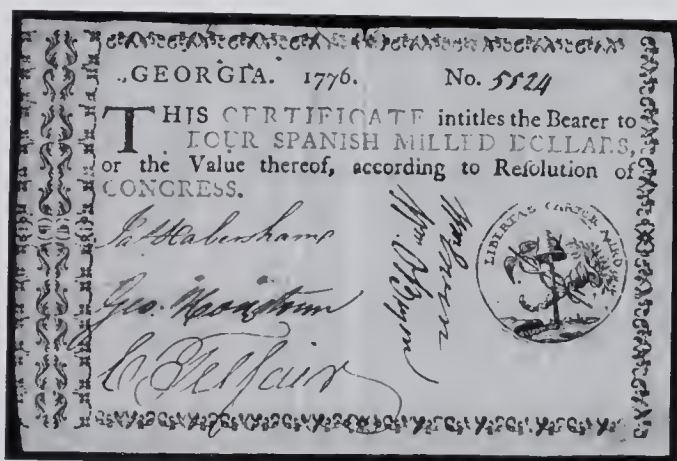 GEORGIA. 1776. No. 5524
THIS CERTIFICATE intitles the Bearer to
FOUR SPANISH MILLED DOLLARS,
or the Value thereof, according to Resolution of
CONGRESS.
Jas Habersham
Wm OBryen
LIBERTAS CARIOR AURO
E Telfair